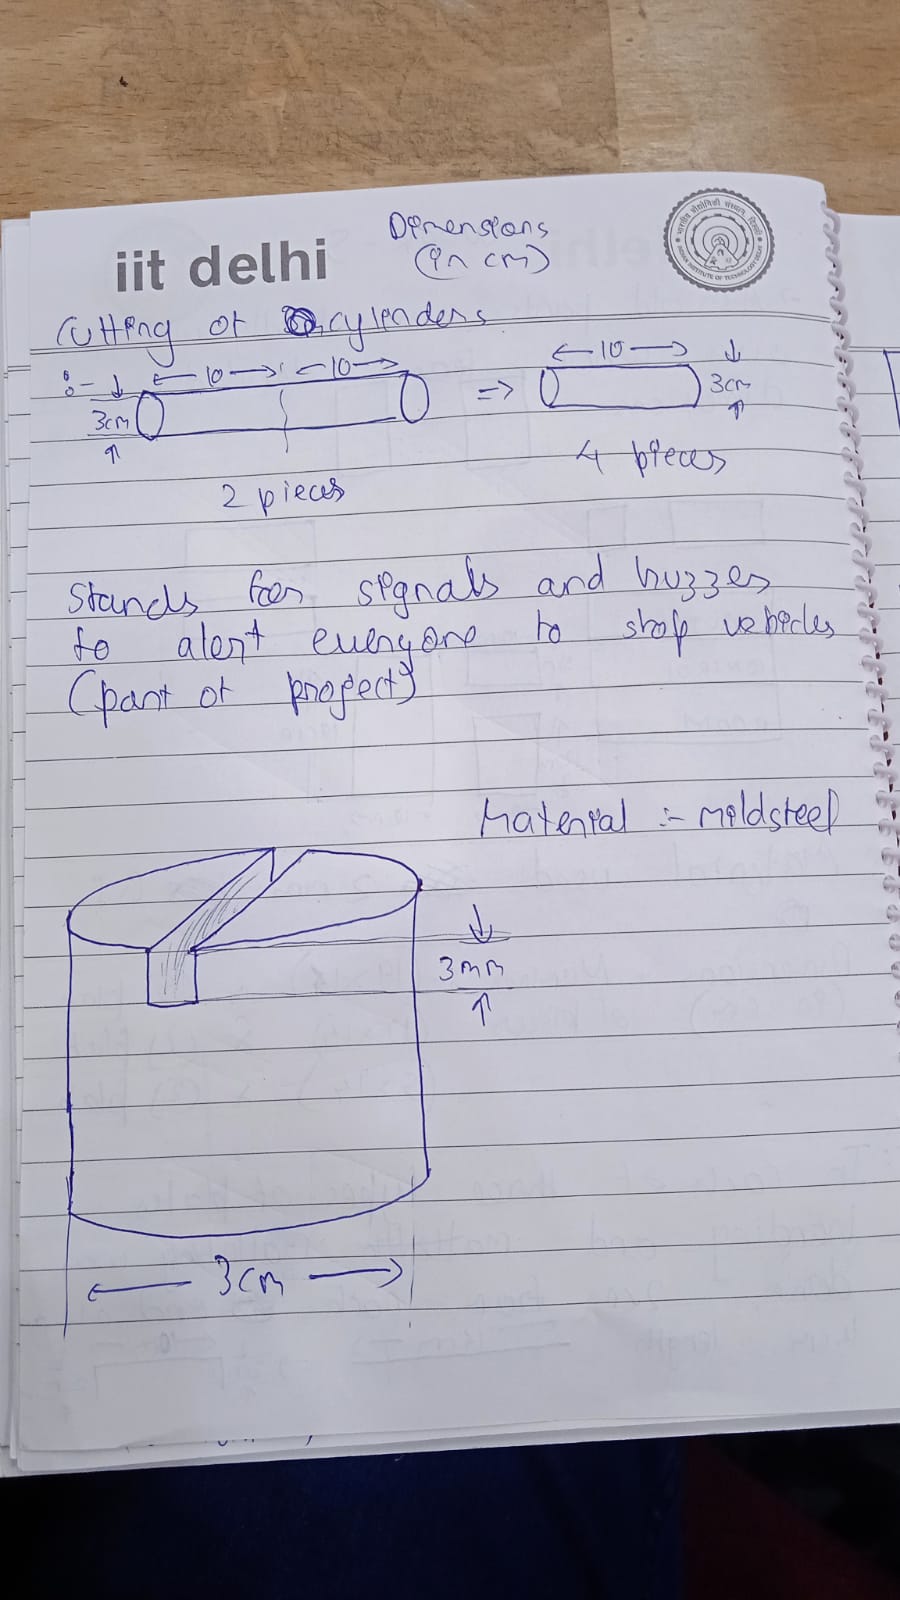 iit delhi
Dimensions
(in cm)
Cutting of cylinders
:-
3cm
10
10
10
3cm
2 pieces
4 pieces
Stands for signals and buzzer
to alert everyone to stop vehicles
(part of project)
Material :- mildsteel
3mm
3cm